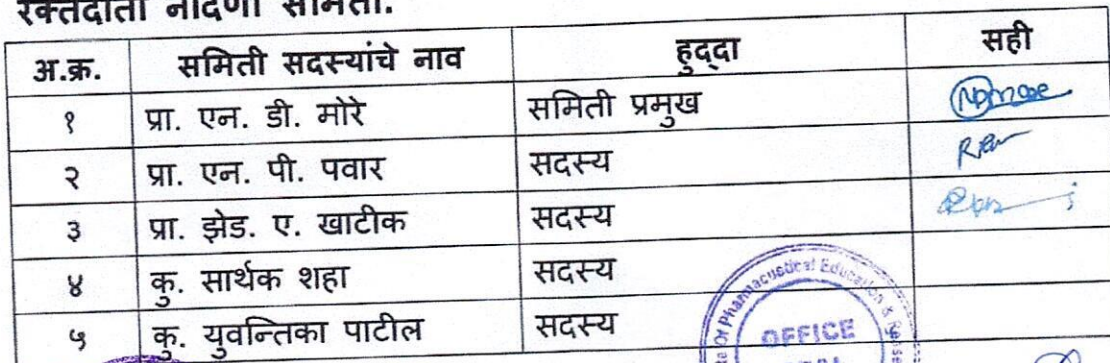 रक्तदाता नोंदणी समिती.
अ.क्र. समिती सदस्यांचे नाव हुद्दा सही
१ प्रा. एन. डी. मोरे समिती प्रमुख
२ प्रा. एन. पी. पवार सदस्य
३ प्रा. झेड. ए. खाटीक सदस्य
४ कु. सार्थक शहा सदस्य
५ कु. युवन्तिका पाटील सदस्य
Of Pharmaceutical Education &
OFFICE